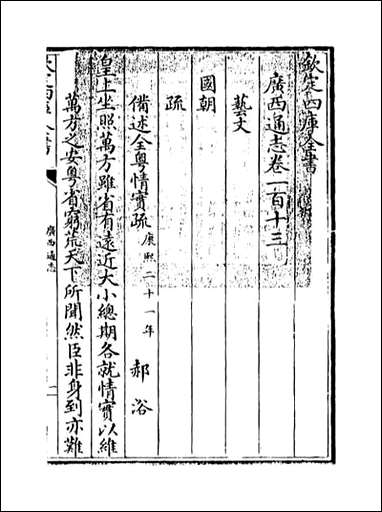 欽定四庫全書
廣西通志卷一百十三
藝文
國朝
疏
備述全粵情實疏 康熙二十一年 郝浴
皇上坐照萬方雖省有遠近大小總期各就情實以維
萬方之安粵省窮荒天下所聞然臣非身到亦難
廣西通志